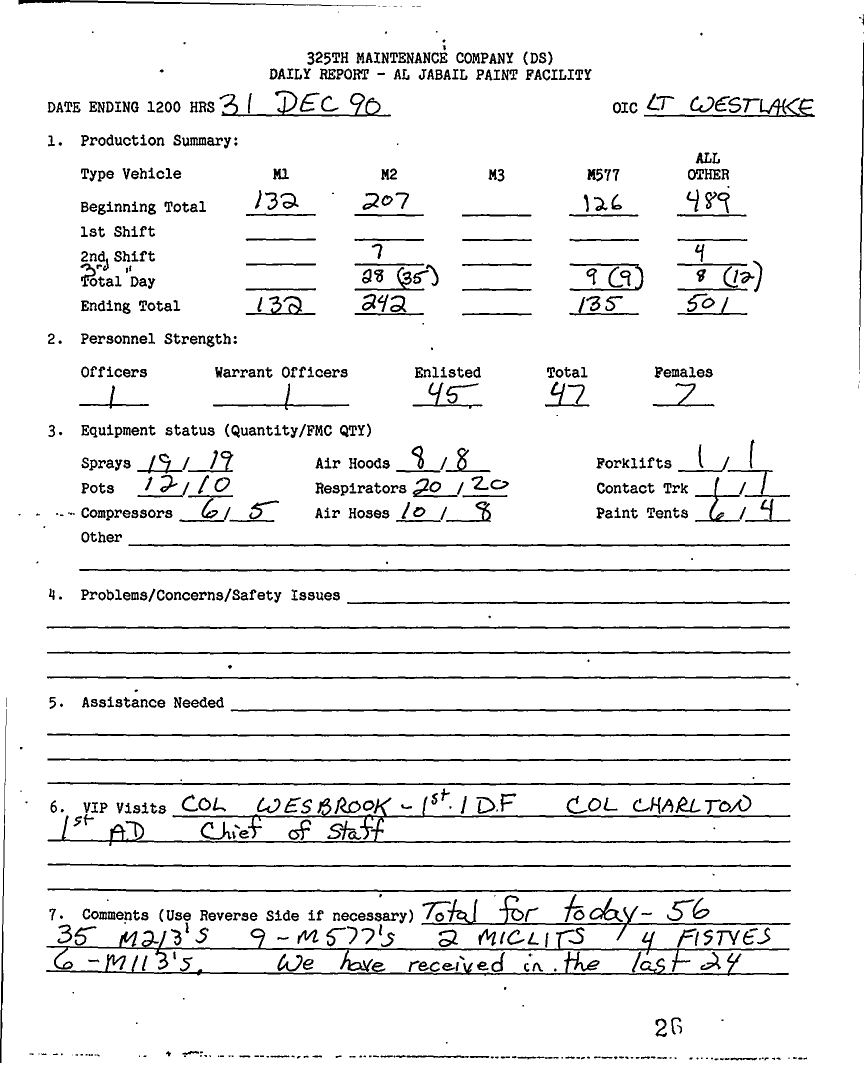 325TH MAINTENANCE COMPANY (DS)
DAILY REPORT - AL JABAIL PAINT FACILITY
DATE ENDING 1200 HRS 31 DEC 90 OIC LT WESTLAKE
1. Production Summary:
ALL
Type Vehicle M1 M2 M3 M577 OTHER
Beginning Total 132 207 126 489
1st Shift
2nd Shift 7 4
3rd "
Total Day 28 (35) 9 (9) 8 (12)
Ending Total 132 242 135 501
2. Personnel Strength:
Officers Warrant Officers Enlisted Total Females
1 1 45 47 7
3. Equipment status (Quantity/FMC QTY)
Sprays 19 / 19 Air Hoods 8 / 8 Forklifts 1 / 1
Pots 12 / 10 Respirators 20 / 20 Contact Trk 1 / 1
Compressors 6 / 5 Air Hoses 10 / 8 Paint Tents 6 / 4
Other
4. Problems/Concerns/Safety Issues
5. Assistance Needed
6. VIP Visits COL WESBROOK - 1st. I D.F COL CHARLTON
1st AD Chief of Staff
7. Comments (Use Reverse Side if necessary) Total for today - 56
35 M2/3's 9 - M577's 2 MICLITS / 4 FISTVES
6 - M113's. We have received in the last 24
26